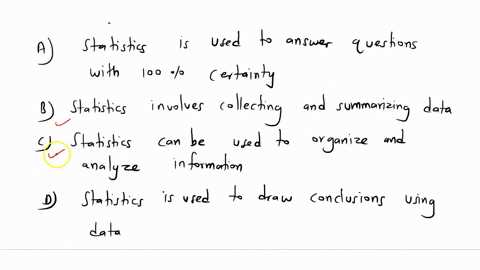 A) Statistics is used to answer questions
with 100 % certainty
B) Statistics involves collecting and summarizing data
C) Statistics can be used to organize and
analyze information
D) Statistics is used to draw conclusions using
data